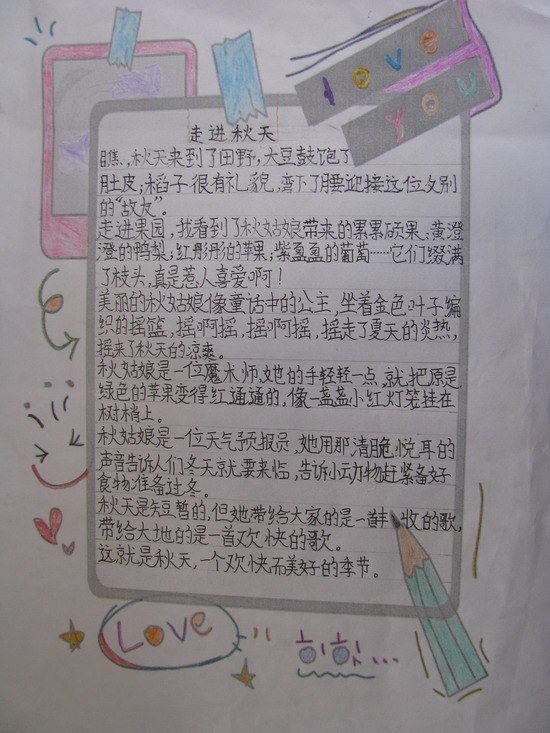 love
you
走进秋天
瞧,秋天来到了田野,大豆鼓饱了
肚皮;稻子很有礼貌,弯下了腰迎接这位久别
的“故友”。
走进果园,我看到了秋姑娘带来的累累硕果:黄澄
澄的鸭梨;红彤彤的苹果;紫盈盈的葡萄……它们缀满
了枝头,真是惹人喜爱啊!
美丽的秋姑娘像童话中的公主,坐着金色叶子编
织的摇篮,摇啊摇,摇啊摇,摇走了夏天的炎热,
摇来了秋天的凉爽。
秋姑娘是一位魔术师,她的手轻轻一点,就把原是
绿色的苹果变得红通通的,像一盏盏小红灯笼挂在
树梢上。
秋姑娘是一位天气预报员,她用那清脆悦耳的
声音告诉人们冬天就要来临,告诉小动物赶紧备好
食物准备过冬。
秋天是短暂的,但她带给大家的是一首丰收的歌,
带给大地的是一首欢快的歌。
这就是秋天,一个欢快而美好的季节。
LOVe
히힛...